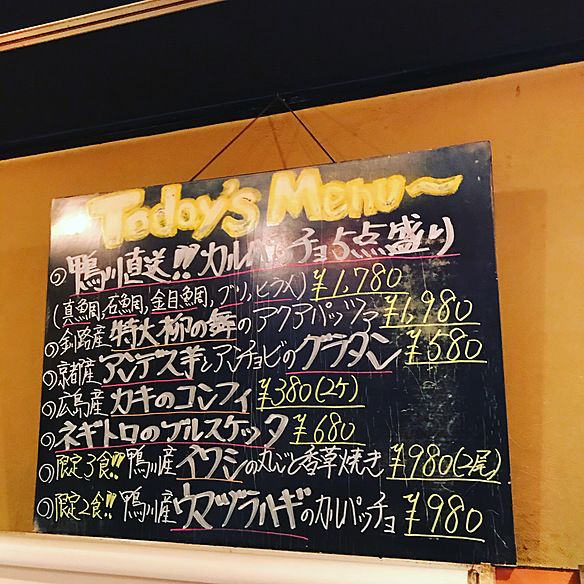 Today's Menu～
○鴨川直送!! カルパッチョ5点盛り
(真鯛,石鯛,金目鯛,ブリ,ヒラメ) ¥1,780
○釧路産 特大柳の舞のアクアパッツァ ¥1,980
○京都産 アンデス芋とアンチョビのグラタン ¥580
○広島産 カキのコンフィ ¥380(2ケ)
○ネギトロのブルスケッタ ¥680
○限定3食!! 鴨川産 イワシの丸ごと香草焼き ¥980(2尾)
○限定2食!! 鴨川産 ウマヅラハギのカルパッチョ ¥980